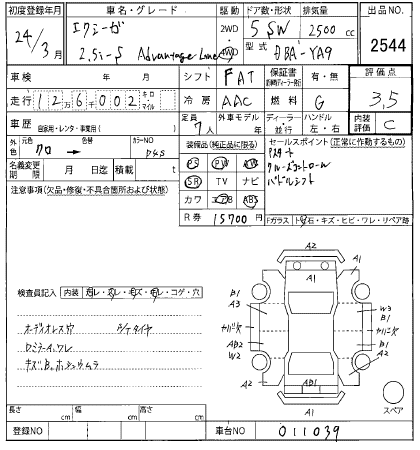 初度登録年月 車名・グレード 駆動 ドア数・形状 排気量 出品NO.
24/3月 エクシーガ 2.5i-S Advantage Line 2WD 4WD 5 SW 2500 cc
型式 DBA-YA9 2544
車検 年 月 シフト FAT 保証書 有・無 評価点
走行 12万6千002 キロ マイル 冷房 AAC 燃料 G 3.5
車歴 自家用・レンタ・事業用( ) 定員 7人 外車モデル 年 ディーラー・並行 ハンドル 左・右 内装評価 C
外色 元色 クロ → 色替 カラーNO D4S
装備品(純正品に限る) セールスポイント(正常に作動するもの)
PS PW AW Pスタート
名義変更期限 月 日迄 積載 t SR TV ナビ クルーズコントロール
注意事項(欠品・修復・不具合箇所および状態) カワ エアB ABS パドルシフト
R券 15700円 Fガラス トビ石・キズ・ヒビ・ワレ・リペア跡
検査員記入 内装 スレ・コゲ・穴
A2
A1
A1 A1
B1
A3
W3
B1
AB2
W2
A2 A2
AB1
A1
スペア
長さ cm 幅 cm 高さ cm
登録NO 車台NO 011039